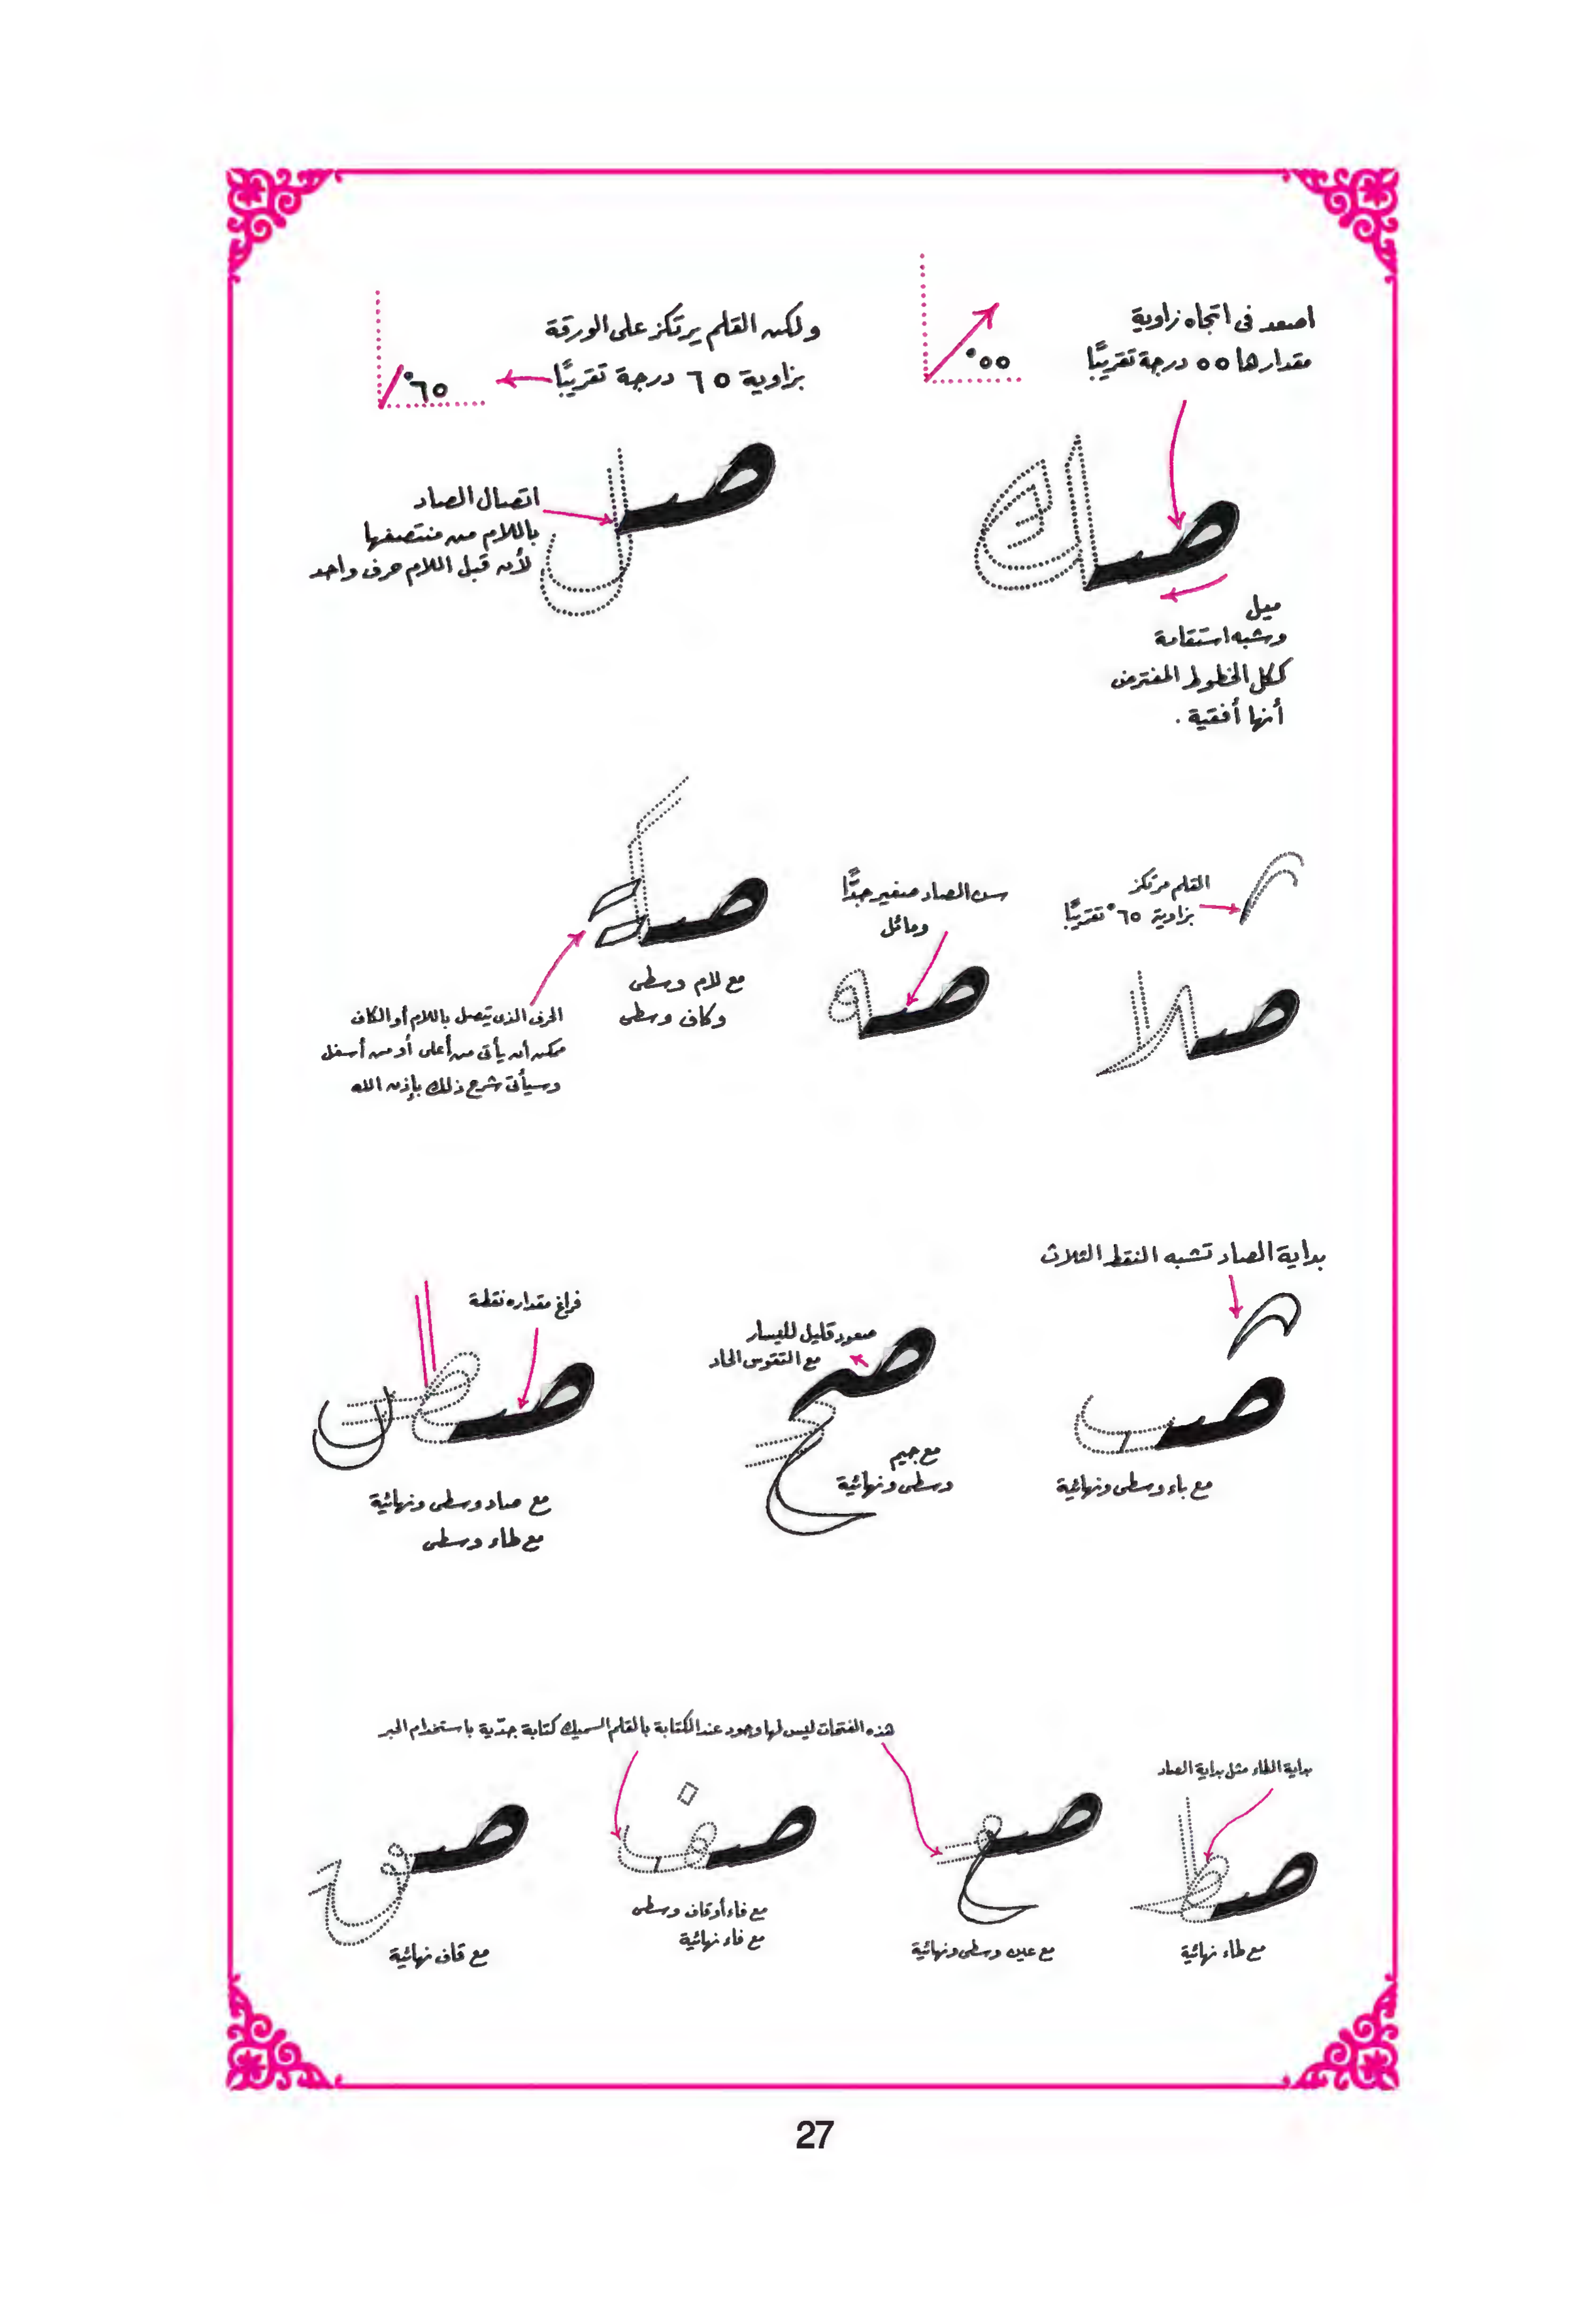 اصعد فى اتجاه زاوية
مقدارها ٥٥ درجة تقريبًا
٥٥°
ولكن القلم يرتكز على الورقة
بزاوية ٦٥ درجة تقريبًا
٦٥°
صك
صل
اتصال الصاد
باللام من منتصفها
لأن قبل اللام حرف واحد
ميل
وشبه استقامة
ككل الخطوط المفترض
أنها أفقية .
القلم مرتكز
بزاوية ٦٥° تقريبًا
صلا
سن الصاد صغير جدًّا
ومائل
صه
صكـ
مع لام وسطى
وكاف وسطى
الحرف الذى يتصل باللام أو الكاف
ممكن أن يأتى من أعلى أو من أسفل
وسيأتى شرح ذلك بإذن الله
بداية الصاد تشبه النقط الثلاث
صب
مع باء وسطى ونهائية
صعود قليل لليسار
مع التقوس الحاد
صح
مع جيم
وسطى ونهائية
فراغ مقداره نقطة
صص
مع صاد وسطى ونهائية
مع طاء وسطى
هذه الفتحات ليس لها وجود عند الكتابة بالقلم السميك كتابة جدّية باستخدام الحبر
بداية الطاء مثل بداية الصاد
صط
مع طاء نهائية
صع
مع عين وسطى ونهائية
صف
مع فاء أو قاف وسطى
مع فاء نهائية
صق
مع قاف نهائية
27